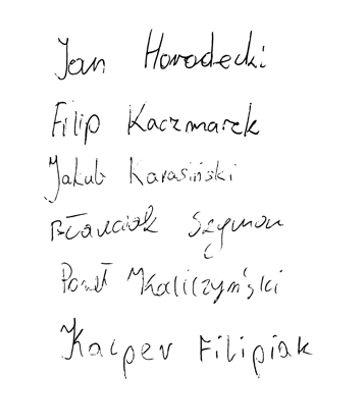 Jan Horodecki
Filip Kaczmarek
Jakub Karasiński
Szymon
Paweł Kaliczyński
Kacper Filipiak